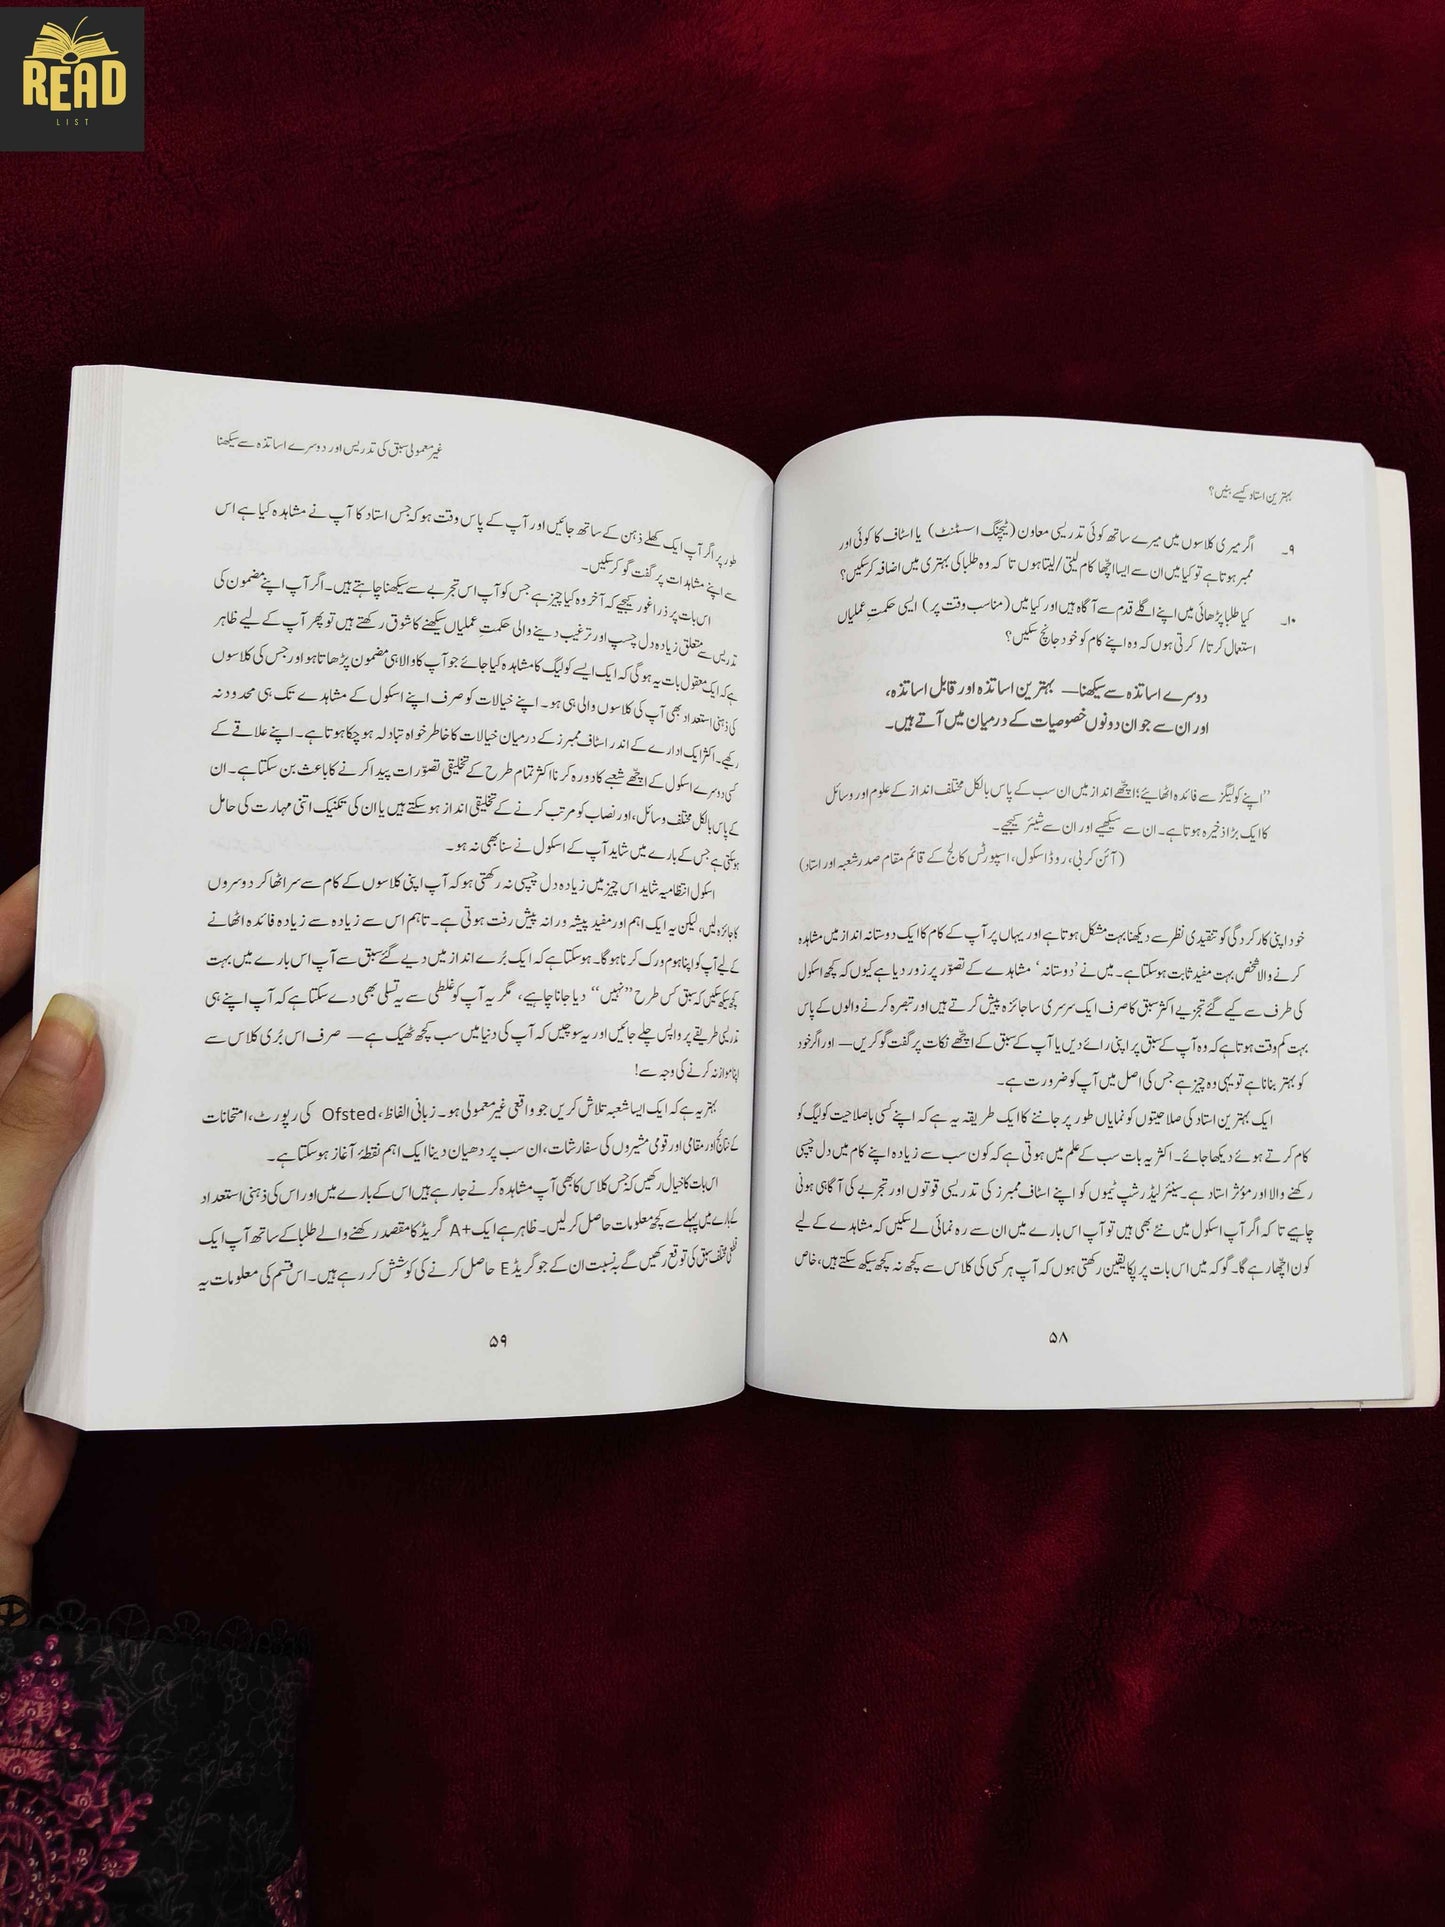 READ
LIST
بہترین استاد کیسے بنیں؟
۹۔ اگر میری کلاسوں میں میرے ساتھ کوئی تدریسی معاون (ٹیچنگ اسسٹنٹ) یا اسٹاف کا کوئی اور
ممبر ہوتا ہے تو کیا میں ان سے ایسا اچھا کام لیتی/لیتا ہوں تا کہ وہ طلبا کی بہتری میں اضافہ کر سکیں؟
۱۰۔ کیا طلبا پڑھائی میں اپنے اگلے قدم سے آگاہ ہیں اور کیا میں (مناسب وقت پر) ایسی حکمتِ عملیاں
استعمال کرتا/ کرتی ہوں کہ وہ اپنے کام کو خود جانچ سکیں؟
دوسرے اساتذہ سے سیکھنا— بہترین اساتذہ اور قابل اساتذہ،
اور ان سے جو ان دونوں خصوصیات کے درمیان میں آتے ہیں۔
”اپنے کولیگز سے فائدہ اٹھائیے؛ اچھے انداز میں ان سب کے پاس بالکل مختلف انداز کے علوم اور وسائل
کا ایک بڑا ذخیرہ ہوتا ہے۔ ان سے سیکھیے اور ان سے شیئر کیجیے۔
(آئن کربی، روڈ اسکول، اسپورٹس کالج کے قائم مقام صدر شعبہ اور استاد)
خود اپنی کارکردگی کو تنقیدی نظر سے دیکھنا بہت مشکل ہوتا ہے اور یہاں پر آپ کے کام کا ایک دوستانہ انداز میں مشاہدہ
کرنے والا شخص بہت مفید ثابت ہو سکتا ہے۔ میں نے ’دوستانہ‘ مشاہدے کے تصوّر پر زور دیا ہے کیوں کہ کچھ اسکول
کی طرف سے کیے گئے تجزیے اکثر سبق کا صرف ایک سرسری سا جائزہ پیش کرتے ہیں اور تبصرہ کرنے والوں کے پاس
بہت کم وقت ہوتا ہے کہ وہ آپ کے سبق پر اپنی رائے دیں یا آپ کے سبق کے اچھے نکات پر گفت گو کریں — اور اگر خود
کو بہتر بنانا ہے تو یہی وہ چیز ہے جس کی اصل میں آپ کو ضرورت ہے۔
ایک بہترین استاد کی صلاحیتوں کو نمایاں طور پر جاننے کا ایک طریقہ یہ ہے کہ اپنے کسی باصلاحیت کولیگ کو
کام کرتے ہوئے دیکھا جائے۔ اکثر یہ بات سب کے علم میں ہوتی ہے کہ کون سب سے زیادہ اپنے کام میں دل چسپی
رکھنے والا اور مؤثر استاد ہے۔ سینئر لیڈرشپ ٹیموں کو اپنے اسٹاف ممبرز کی تدریسی قوتوں اور تجربے کی آگاہی ہونی
چاہیے تا کہ اگر آپ اسکول میں نئے بھی ہیں تو آپ اس بارے میں ان سے رہ نمائی لے سکیں کہ مشاہدے کے لیے
کون اچھا رہے گا۔ گو کہ میں اس بات پر پکا یقین رکھتی ہوں کہ آپ ہر کسی کی کلاس سے کچھ نہ کچھ سیکھ سکتے ہیں، خاص
۵۸
غیر معمولی سبق کی تدریس اور دوسرے اساتذہ سے سیکھنا
طور پر اگر آپ ایک کھلے ذہن کے ساتھ جائیں اور آپ کے پاس وقت ہو کہ جس استاد کا آپ نے مشاہدہ کیا ہے اس
سے اپنے مشاہدات پر گفت گو کر سکیں۔
اس بات پر ذرا غور کیجیے کہ آخر وہ کیا چیز ہے جس کو آپ اس تجربے سے سیکھنا چاہتے ہیں۔ اگر آپ اپنے مضمون کی
تدریس سے متعلق زیادہ دل چسپ اور ترغیب دینے والی حکمتِ عملیاں سیکھنے کا شوق رکھتے ہیں تو پھر آپ کے لیے ظاہر
ہے کہ ایک معقول بات یہ ہو گی کہ ایک ایسے کولیگ کا مشاہدہ کیا جائے جو آپ کا والا ہی مضمون پڑھاتا ہو اور جس کی کلاسوں
کی ذہنی استعداد بھی آپ کی کلاسوں والی ہی ہو۔ اپنے خیالات کو صرف اپنے اسکول کے مشاہدے تک ہی محدود نہ
رکھیے۔ اکثر ایک ادارے کے اندر اسٹاف ممبرز کے درمیان خیالات کا خاطر خواہ تبادلہ ہو چکا ہوتا ہے۔ اپنے علاقے کے
کسی دوسرے اسکول کے اچھے شعبے کا دورہ کرنا اکثر تمام طرح کے تخلیقی تصوّرات پیدا کرنے کا باعث بن سکتا ہے۔ ان
کے پاس بالکل مختلف وسائل، اور نصاب کو مرتب کرنے کے تخلیقی انداز ہو سکتے ہیں یا ان کی تکنیک اتنی مہارت کی حامل
ہو سکتی ہے جس کے بارے میں شاید آپ کے اسکول نے سنا بھی نہ ہو۔
اسکول انتظامیہ شاید اس چیز میں زیادہ دل چسپی نہ رکھتی ہو کہ آپ اپنی کلاسوں کے کام سے سر اٹھا کر دوسروں
کا جائزہ لیں، لیکن یہ ایک اہم اور مفید پیشہ ورانہ پیش رفت ہوتی ہے۔ تاہم اس سے زیادہ سے زیادہ فائدہ اٹھانے
کے لیے آپ کو اپنا ہوم ورک کرنا ہو گا۔ ہو سکتا ہے کہ ایک بُرے انداز میں دیے گئے سبق سے آپ اس بارے میں بہت
کچھ سیکھ سکیں کہ سبق کس طرح ”نہیں“ دیا جانا چاہیے، مگر یہ آپ کو غلطی سے یہ تسلی بھی دے سکتا ہے کہ آپ اپنے ہی
تدریسی طریقے پر واپس چلے جائیں اور یہ سوچیں کہ آپ کی دنیا میں سب کچھ ٹھیک ہے— صرف اس بُری کلاس سے
اپنا موازنہ کرنے کی وجہ سے!
بہتر یہ ہے کہ ایک ایسا شعبہ تلاش کریں جو واقعی غیر معمولی ہو۔ زبانی الفاظ، Ofsted کی رپورٹ، امتحانات
کے نتائج اور مقامی اور قومی مشیروں کی سفارشات، ان سب پر دھیان دینا ایک اہم نقطۂ آغاز ہو سکتا ہے۔
اس بات کا خیال رکھیں کہ جس کلاس کا بھی آپ مشاہدہ کرنے جا رہے ہیں اس کے بارے میں اور اس کی ذہنی استعداد
کے بارے میں پہلے سے کچھ معلومات حاصل کر لیں۔ ظاہر ہے ایک A+ گریڈ کا مقصد رکھنے والے طلبا کے ساتھ آپ ایک
مختلف سبق کی توقع رکھیں گے بہ نسبت ان کے جو گریڈ E حاصل کرنے کی کوشش کر رہے ہیں۔ اس قسم کی معلومات یہ
۵۹